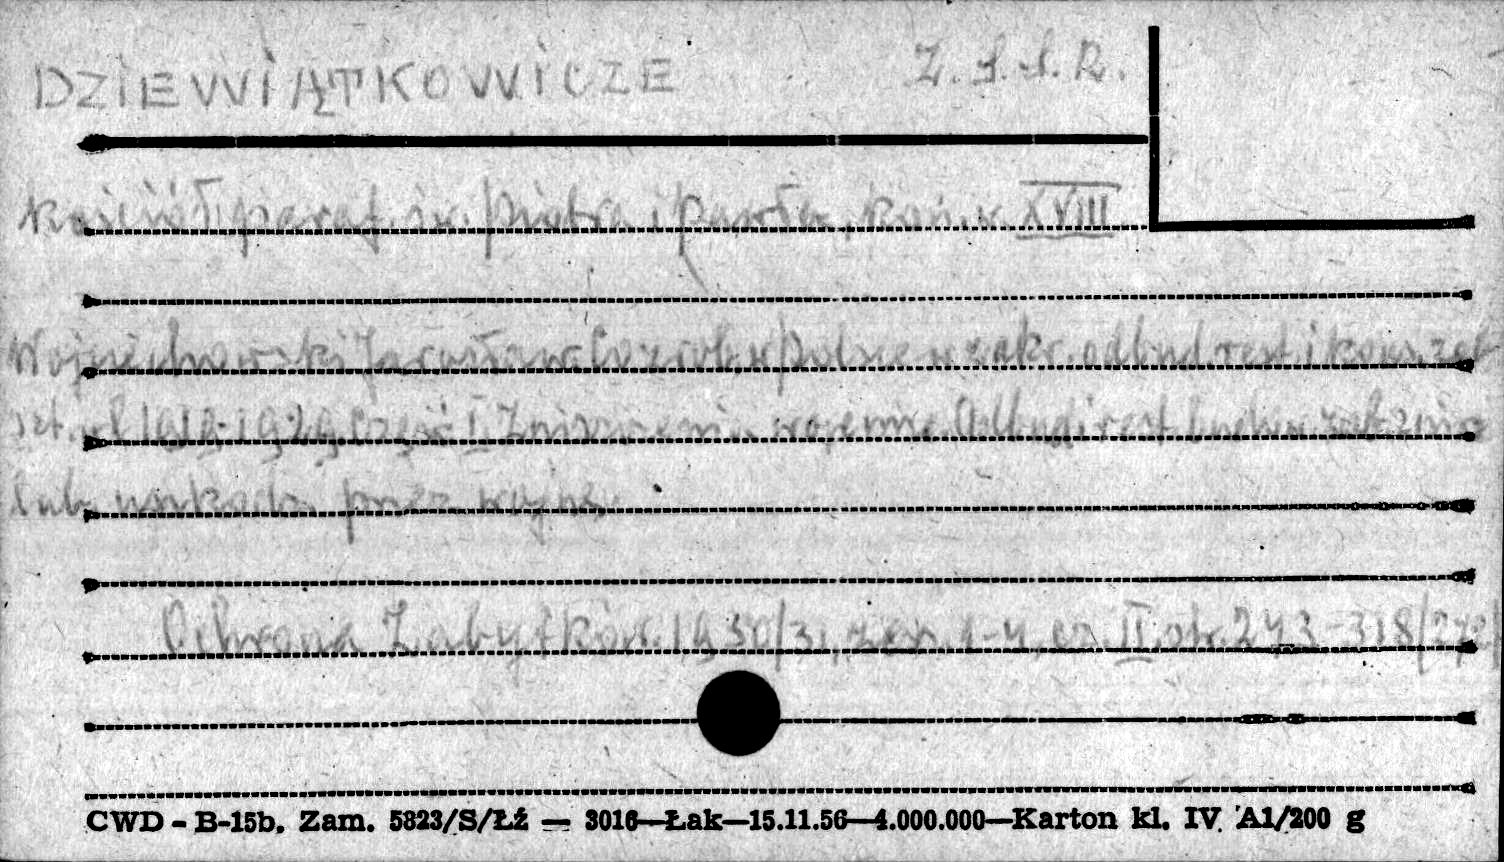 DZIEWIĄTKOWICZE Z.S.S.R.
Kościół paraf. św. Piotra i Pawła, kon. w. XVIII
Wojciechowski Jarosław. Co zrob. w Polsce w zakr. odbud. rest. i kons. zab.
szt. od 1919-1929. Część I. Zniszczenia wojenne. Odbud. i rest. budow. zab. zniszcz
lub uszkodz. przez wojnę
Ochrona Zabytków. 1930/31, zesz. 1-4, cz. II. str. 243-318
CWD - B-15b. Zam. 5823/S/Łź — 3016—Łak—15.11.56—4.000.000—Karton kl. IV A1/200 g